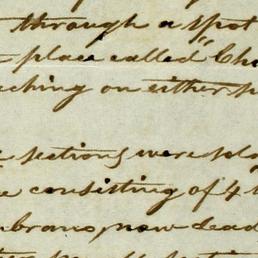 through a spot
place called "Cha
aching on either s
sections were pla
consisting of 4
brano, now dead